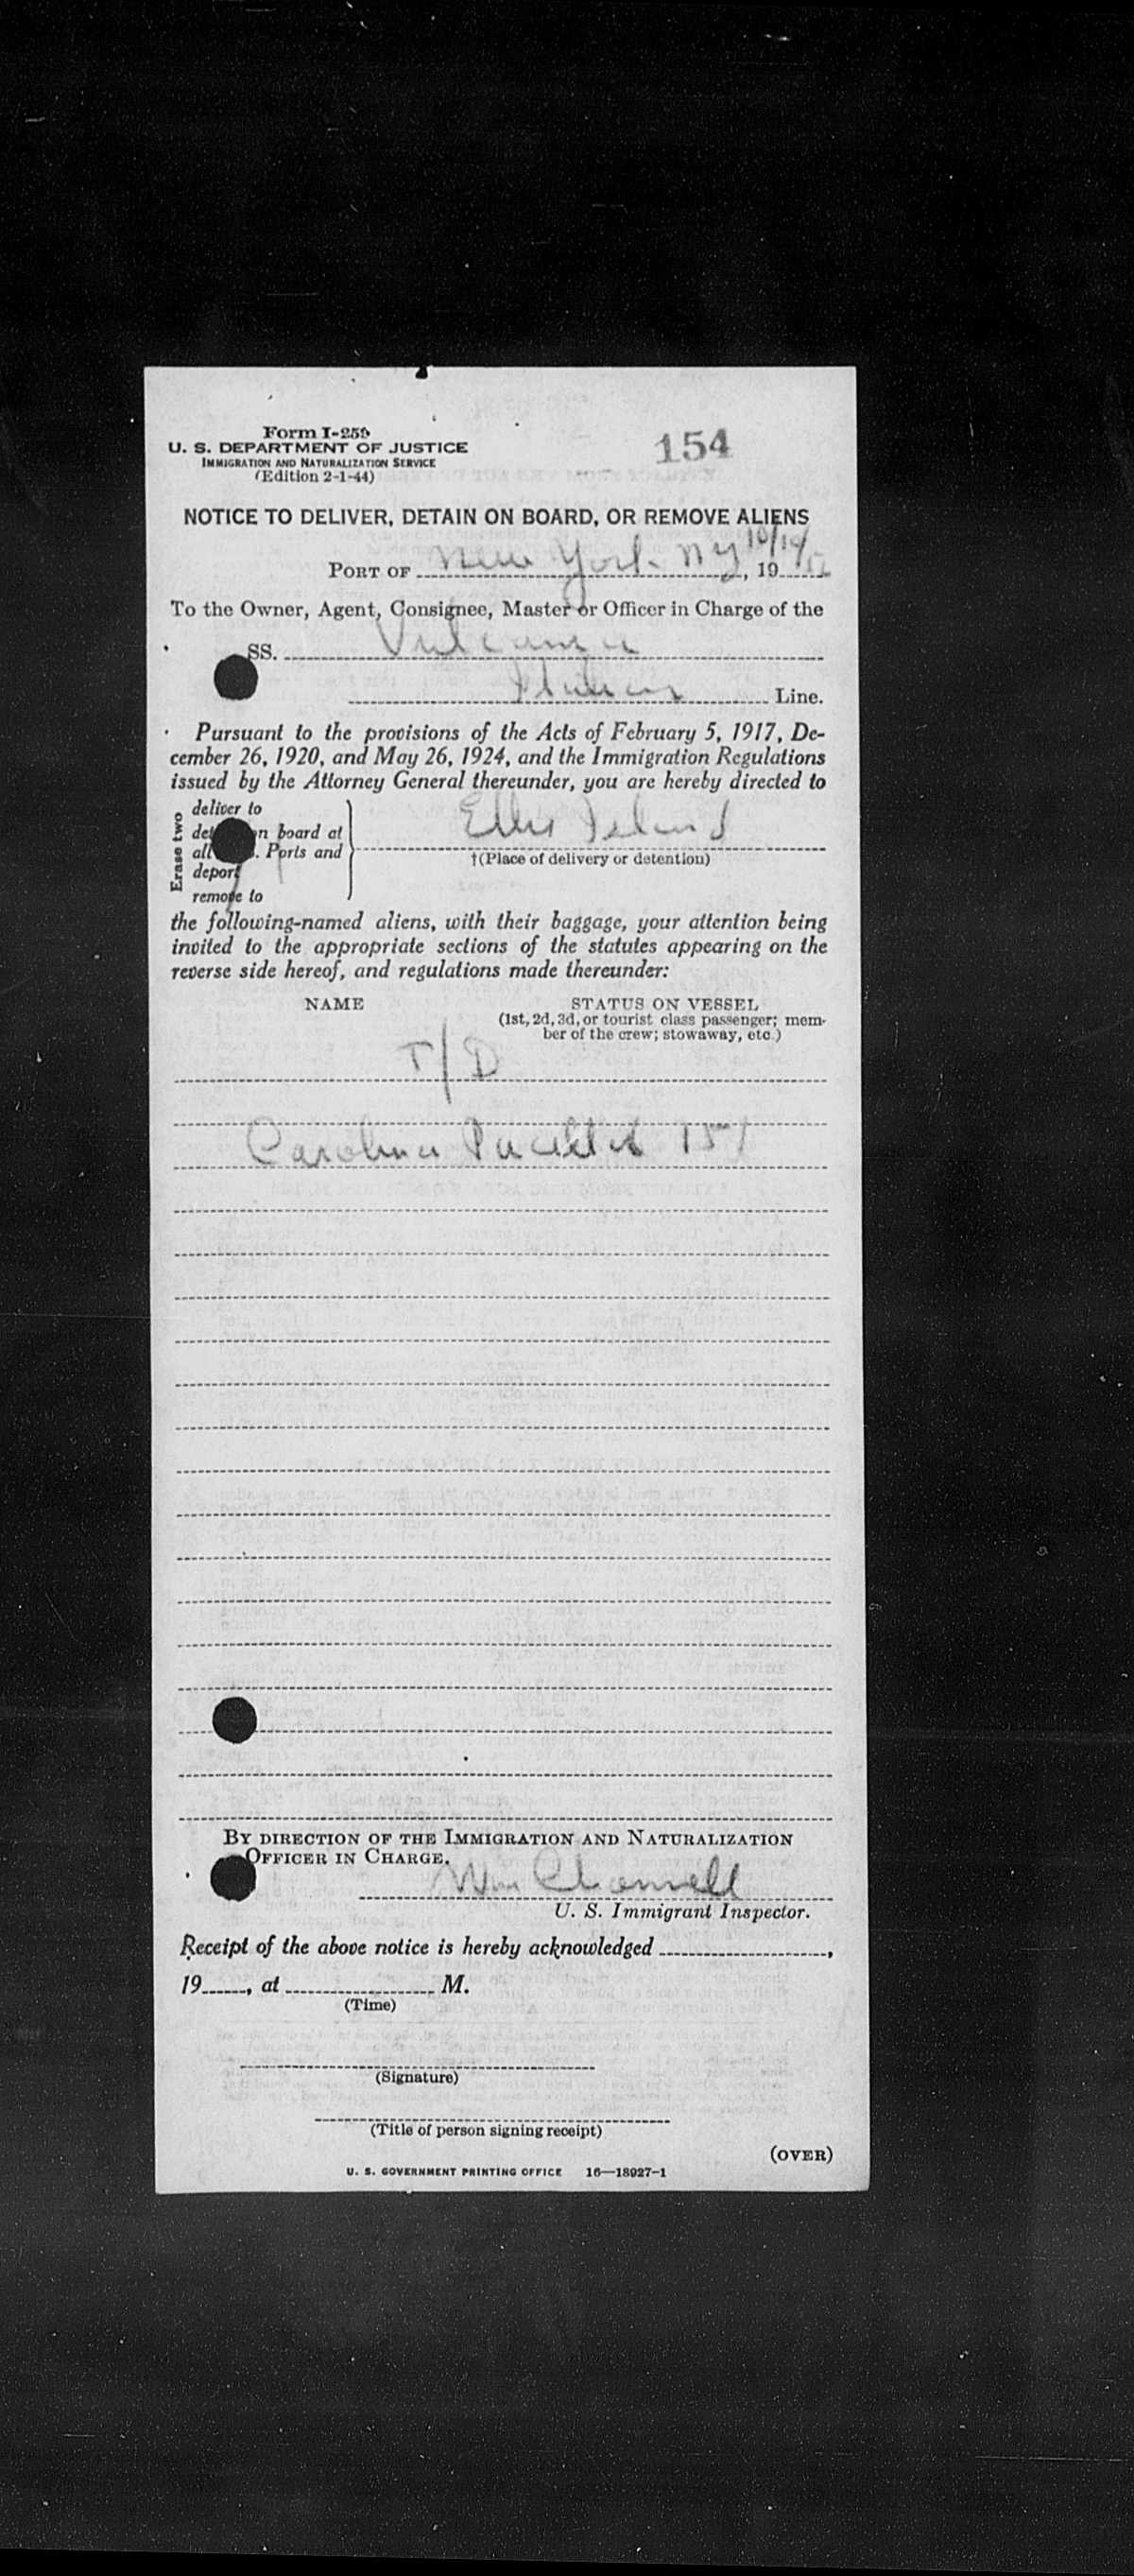 Form I-259
U. S. DEPARTMENT OF JUSTICE
IMMIGRATION AND NATURALIZATION SERVICE
(Edition 2-1-44)
154
NOTICE TO DELIVER, DETAIN ON BOARD, OR REMOVE ALIENS
PORT OF New York NY 10/14/, 19
To the Owner, Agent, Consignee, Master or Officer in Charge of the
SS. Vulcania
Italian Line.
Pursuant to the provisions of the Acts of February 5, 1917, De-
cember 26, 1920, and May 26, 1924, and the Immigration Regulations
issued by the Attorney General thereunder, you are hereby directed to
Erase two
deliver to
on board at
all Ports and
deport
remove to
Ellis Island
†(Place of delivery or detention)
the following-named aliens, with their baggage, your attention being
invited to the appropriate sections of the statutes appearing on the
reverse side hereof, and regulations made thereunder:
NAME
STATUS ON VESSEL
(1st, 2d, 3d, or tourist class passenger; mem-
ber of the crew; stowaway, etc.)
T/D
Carolina 151
BY DIRECTION OF THE IMMIGRATION AND NATURALIZATION
OFFICER IN CHARGE.
Wm
U. S. Immigrant Inspector.
Receipt of the above notice is hereby acknowledged ,
19 , at M.
(Time)
(Signature)
(Title of person signing receipt)
(OVER)
U. S. GOVERNMENT PRINTING OFFICE 16—18927-1